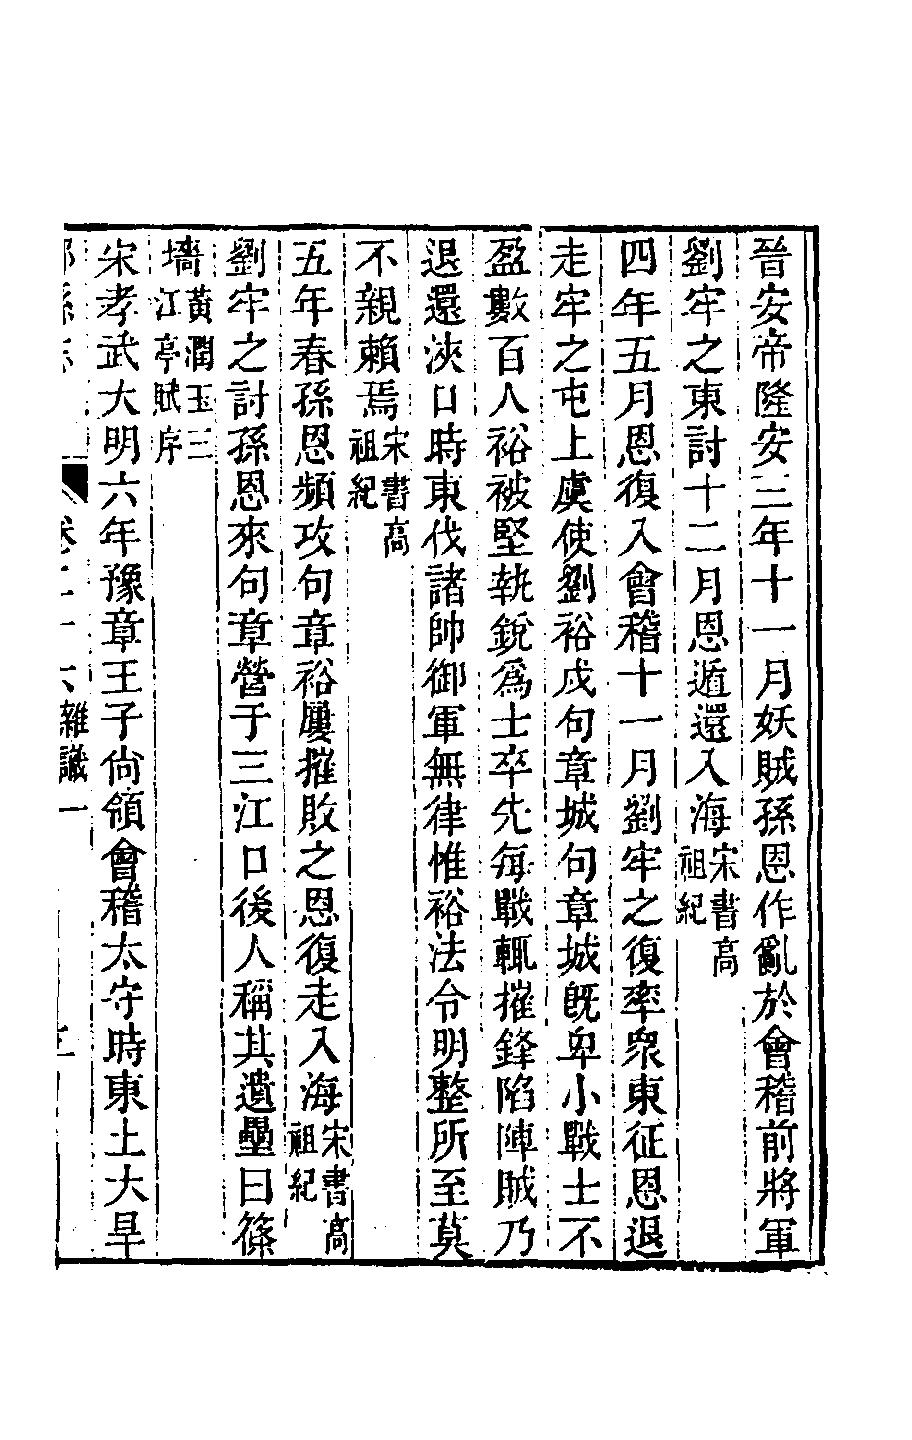 晉安帝隆安三年十一月妖賊孫恩作亂於會稽前將軍
劉牢之東討十二月恩遁還入海宋書高祖紀
四年五月恩復入會稽十一月劉牢之復率衆東征恩退
走牢之屯上虞使劉裕戍句章城句章城旣卑小戰士不
盈數百人裕被堅執銳爲士卒先每戰輒摧鋒陷陣賊乃
退還浹口時東伐諸帥御軍無律惟裕法令明整所至莫
不親賴焉宋書高祖紀
五年春孫恩頻攻句章裕屢摧敗之恩復走入海宋書高祖紀
劉牢之討孫恩來句章營于三江口後人稱其遺壘曰篠
墻黃潤玉三江亭賦序
宋孝武大明六年豫章王子尙領會稽太守時東土大旱
卷二十六雜識一